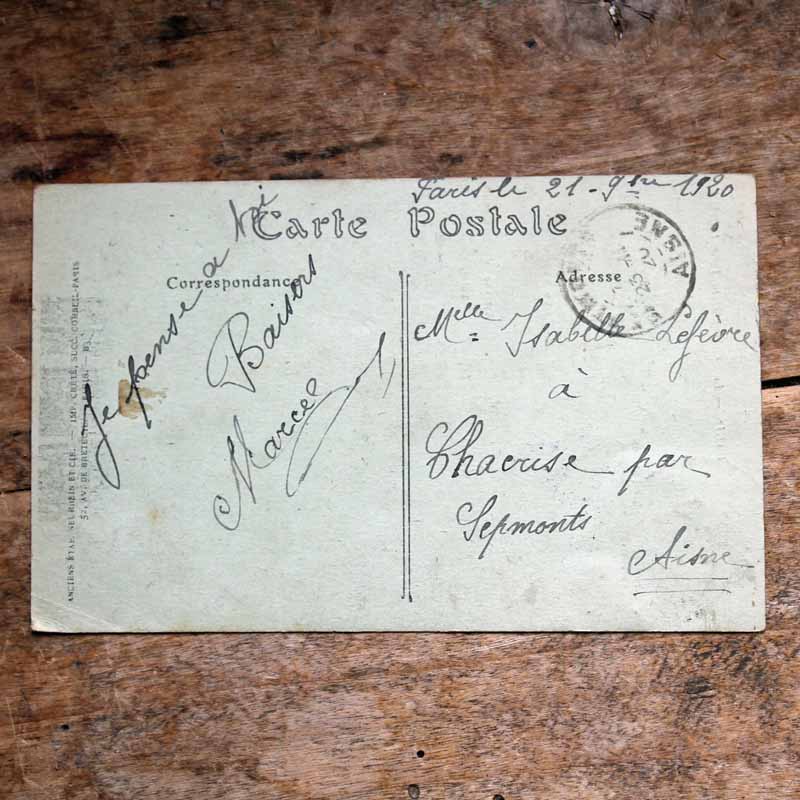 Paris le 21 - 9bre 1920
Carte Postale
Correspondance
Adresse
Je pense a toi
Baisers
Marcel
Melle Isabelle Lefèvre
à
Chacrise par
Septmonts
Aisne
AISNE
ANCIENS ÉTAB. NEURDEIN ET CIE. — IMP. CRÉTÉ, SUCC. CORBEIL-PARIS
52, AV. DE BRETEUIL